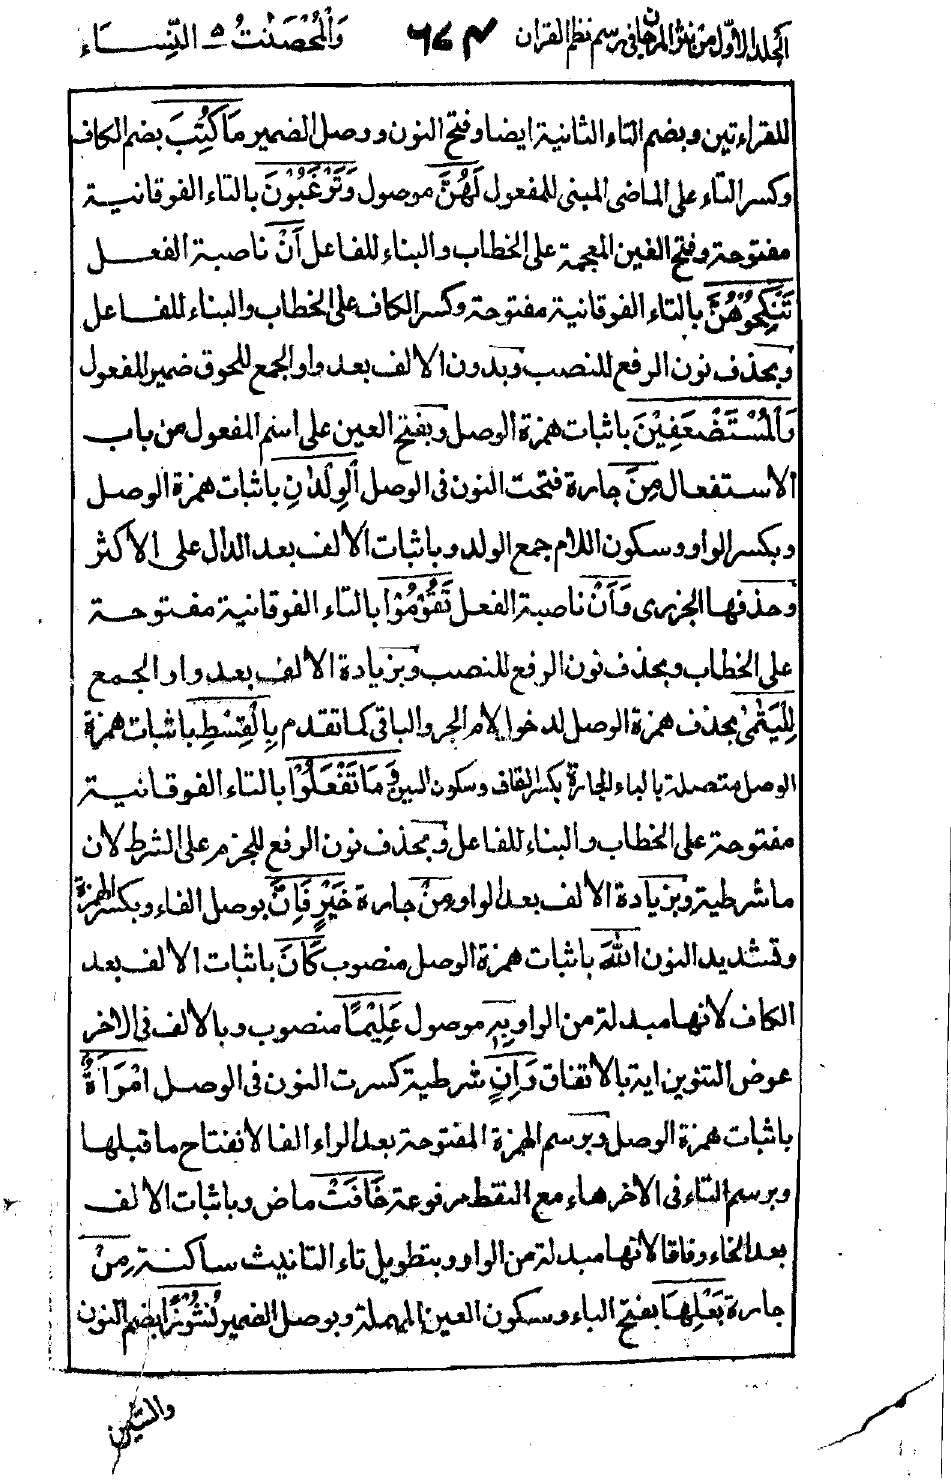 المجلد الاول من نثر المرجان فى رسم نظم القران ٦٧٤ وَالْمُحْصَنٰتُ ٥ النِّسَاء
للقراءتين وبضم التاء الثانية ايضا وفتح النون ووصل الضمير مَا كُتِبَ بضم الكاف
وكسر التاء على الماضى المبنى للمفعول لَهُنَّ موصول وَتَرْغَبُوْنَ بالتاء الفوقانية
مفتوحة وفتح الغين المعجمة على الخطاب والبناء للفاعل اَنْ ناصبة الفعل
تَنْكِحُوْهُنَّ بالتاء الفوقانية مفتوحة وكسر الكاف على الخطاب والبناء للفاعل
وبحذف نون الرفع للنصب وبدون الالف بعد واو الجمع للحوق ضمير المفعول
وَالْمُسْتَضْعَفِيْنَ باثبات همزة الوصل وبفتح العين على اسم المفعول من باب
الاستفعال مِنَ جارة فتحت النون فى الوصل الْوِلْدَانِ باثبات همزة الوصل
وبكسر الواو وسكون اللام جمع الولد وباثبات الالف بعد الدال على الاكثر
وحذفها الجزرى وَاَنْ ناصبة الفعل تَقُوْمُوْا بالتاء الفوقانية مفتوحة
على الخطاب وبحذف نون الرفع للنصب وبزيادة الالف بعد واو الجمع
لِلْيَتٰمٰى بحذف همزة الوصل لدخول لام الجر والباقى كما تقدم بِالْقِسْطِ باثبات همزة
الوصل متصلة بالباء الجارة بكسر القاف وسكون السين وَمَا تَفْعَلُوْا بالتاء الفوقانية
مفتوحة على الخطاب والبناء للفاعل وبحذف نون الرفع للجزم على الشرط لان
ما شرطية وبزيادة الالف بعد الواو مِنْ جارة خَيْرٍ فَاِنَّ بوصل الفاء وبكسر الهمزة
وتشديد النون اللّٰهَ باثبات همزة الوصل منصوب كَانَ باثبات الالف بعد
الكاف لانها مبدلة من الواو بِهٖ موصول عَلِيْمًا منصوب وبالالف فى الاخر
عوض التنوين اية بالاتفاق وَاِنِ شرطية كسرت النون فى الوصل امْرَاَةٌ
باثبات همزة الوصل وبرسم الهمزة المفتوحة بعد الراء الفا لانفتاح ما قبلها
وبرسم التاء فى الاخر هاء مع النقط مرفوعة خَافَتْ ماض وباثبات الالف
بعد الخاء وفاقا لانها مبدلة من الواو وبتطويل تاء التانيث ساكنة مِنْ
جارة بَعْلِهَا بفتح الباء وسكون العين المهملة وبوصل الضمير نُشُوْزًا بضم النون
والشين